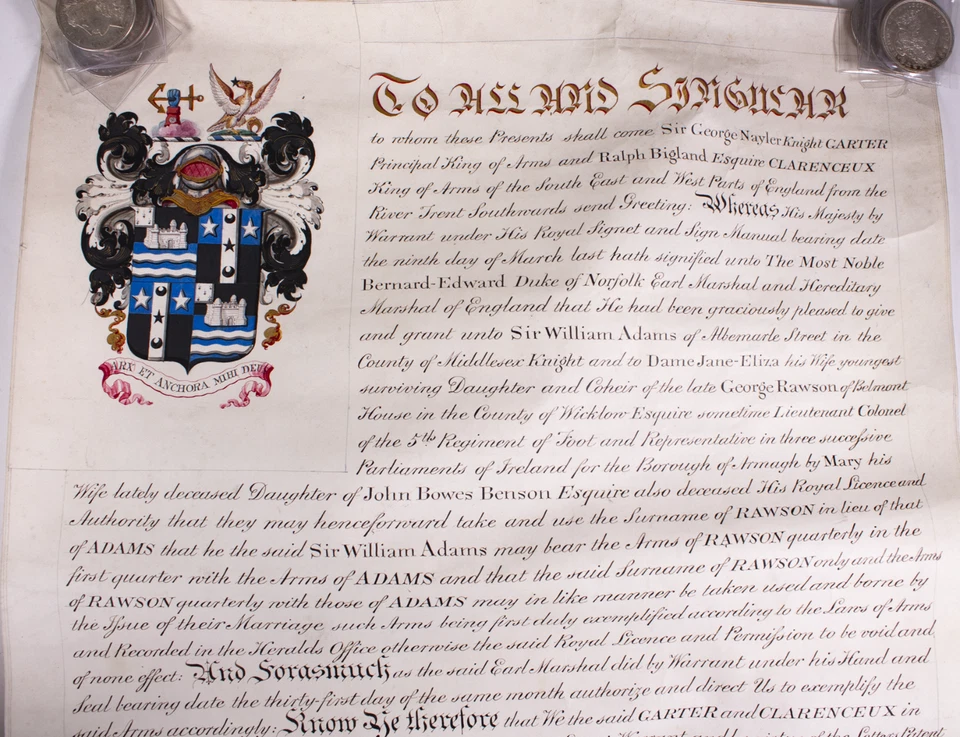 ARX ET ANCHORA MIHI DEUS
To All and Singular
to whom these Presents shall come Sir George Nayler Knight GARTER
Principal King of Arms and Ralph Bigland Esquire CLARENCEUX
King of Arms of the South East and West Parts of England from the
River Trent Southwards send Greeting: Whereas His Majesty by
Warrant under His Royal Signet and Sign Manual bearing date
the ninth day of March last hath signified unto The Most Noble
Bernard-Edward Duke of Norfolk Earl Marshal and Hereditary
Marshal of England that He had been graciously pleased to give
and grant unto Sir William Adams of Albemarle Street in the
County of Middlesex Knight and to Dame Jane-Eliza his Wife youngest
surviving Daughter and Coheir of the late George Rawson of Belmont
House in the County of Wicklow Esquire sometime Lieutenant Colonel
of the 5th Regiment of Foot and Representative in three successive
Parliaments of Ireland for the Borough of Armagh by Mary his
Wife lately deceased Daughter of John Bowes Benson Esquire also deceased His Royal Licence and
Authority that they may henceforward take and use the Surname of RAWSON in lieu of that
of ADAMS that he the said Sir William Adams may bear the Arms of RAWSON quarterly in the
first quarter with the Arms of ADAMS and that the said Surname of RAWSON only and the Arms
of RAWSON quarterly with those of ADAMS may in like manner be taken used and borne by
the Issue of their Marriage such Arms being first duly exemplified according to the Laws of Arms
and Recorded in the Heralds Office otherwise the said Royal Licence and Permission to be void and
of none effect: And Forasmuch as the said Earl Marshal did by Warrant under his Hand and
Seal bearing date the thirty-first day of the same month authorize and direct Us to exemplify the
said Arms accordingly: Know Ye therefore that We the said GARTER and CLARENCEUX in
Warrant and by virtue of the Letters Patent